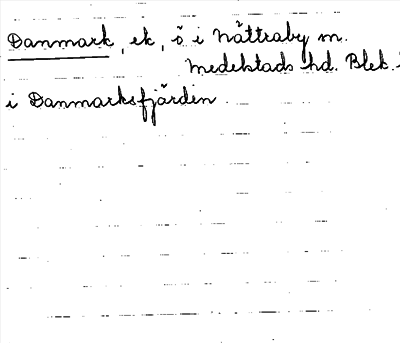 Danmark, ek, ö i Nättraby sn.
Medelstads hd. Blek.
i Danmarksfjärden.